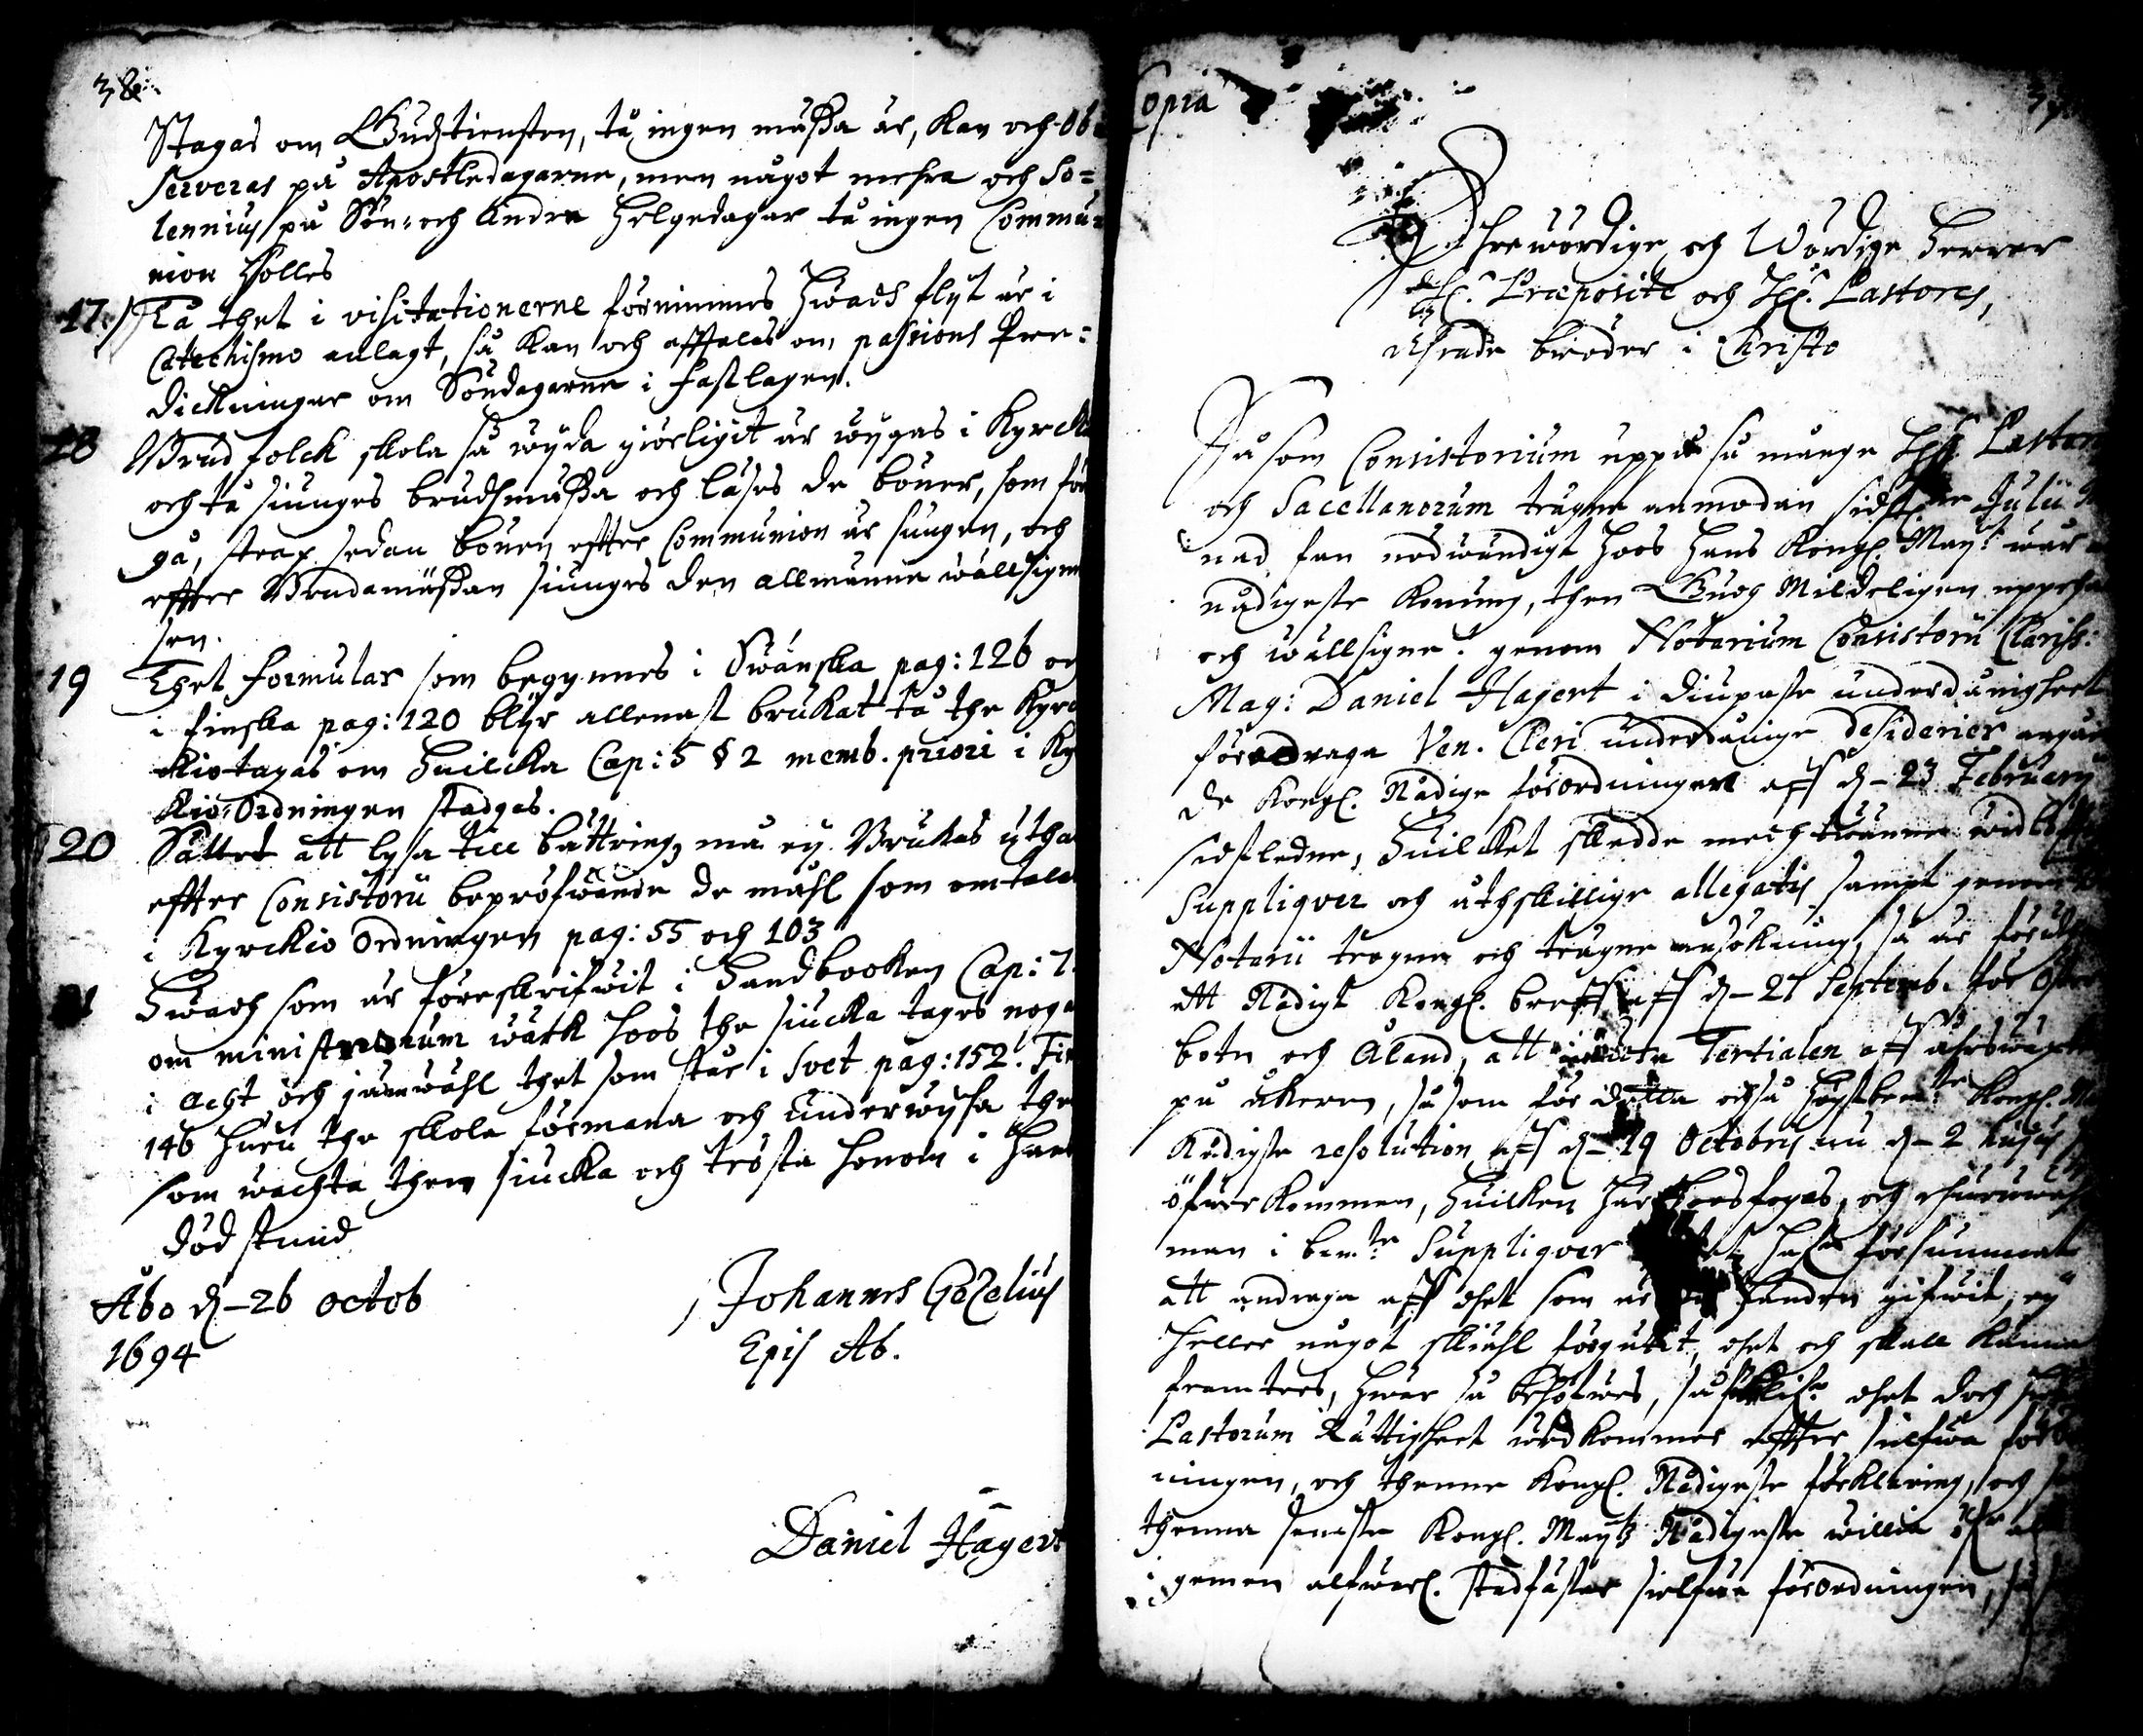 38
Stagas om Gudztiensten, tå ingen mässa är, kan och ob
serveras på Apostledagarne, men något mehra och So=
lennius på Sön= och Andra Helgedagar tå ingen Commu=
nion Holles
17. På thet i visitationerne förnimmes Hwadh flijt är i
Catechismo anlagt, så kan och afftalas om passions Pre=
dickningar om Söndagarne i fastlagen.
18 Brudfolck skola så wijda giörligit är wijgas i Kyrck
och tå siunges brudhmässa och läses de böner, som för
gå, strax sedan bönen effter Communion är siungen, och
effter Brudamässan siunges den allmänna wällsign
sen.
19 Thet formular som begynnes i Swänska pag: 126 oc
i finska pag: 120 blijr allenast brukat tå the Kyrc
kiotagas om Huilcka Cap: 5 § 2 memb. priori i Ky
kio=Ordningen stadgas.
20 Sättet att lysa till bättring, må ey Brukas utha
effter Consistorii beprofwande de mähl som omtala
i Kyrckio Ordningen pag: 55 och 103
21 Hwadh som är föreskrifwit i Handbooken Cap: 7.
om ministrorum wärk hoos the siucka tages noga
i acht och jämwähl thet som står i Svet pag: 152. Fin
146 Huru the skola förmana och underwijsa the
som wachta them siucka och trösta honom i Hans
död stund
Åbo d. 26 octob
1694
Johannes Gezelius
Epis Ab.
Daniel Hagert
Copia
Ehrewördige och Wördige Herrar
H. Præposite och HH. Pastores,
Ehrade bröder i Christo
Såsom Consistorium uppå så månge HH. Pastor
och Sacellanorum trägne anmodan sidst Julii
nad fan nödwändigt hoos Hans Kongl. May:t wår
nådigeste Konung, then Gudh Mildeligen uppeh
och wällsigne! genom Notarium Consistorii Clariss:
Mag: Daniel Hagert i diupaste underdånigheet
föredraga Ven. Cleri underdånige desiderier angå
de Kongl. Nådige förordningen aff d. 23 February
sidstledne, Huilcket skedde medh twänne widlyff
Suppliqver och åthskillige allegatis sampt genom
Notarii trogne och trägne ansökning, så är för
ett Nådigt Kongl. breff aff d. 27 Septemb. för Öster
botn och Åland, att Tertialen aff åhrswäxt
på åkeren, så som för detta också Högstbem:te Kongl. M
Nådigste resolution aff d. 19 Octobris nu d. 2 hujus
öfwerkommen, Huilken här hoosfogas, och ehuruwäl
man i bem:te Suppliqver hafwer försummat
att andraga aff thet som är handen gifwit, ey
heller något skiähl förgätit, thet och skall kunna
framtees, hwar så behöfwes, så thet doch
Pastorum Rättigheet widkommer effter sielfwa förord
ningen, och thenne Kongl. Nådigeste förklaring, och
thenna senaste Kongl. May:tz Nådigeste willia
i gemen alfwarl. stadfäster sielfwa förordningen, så